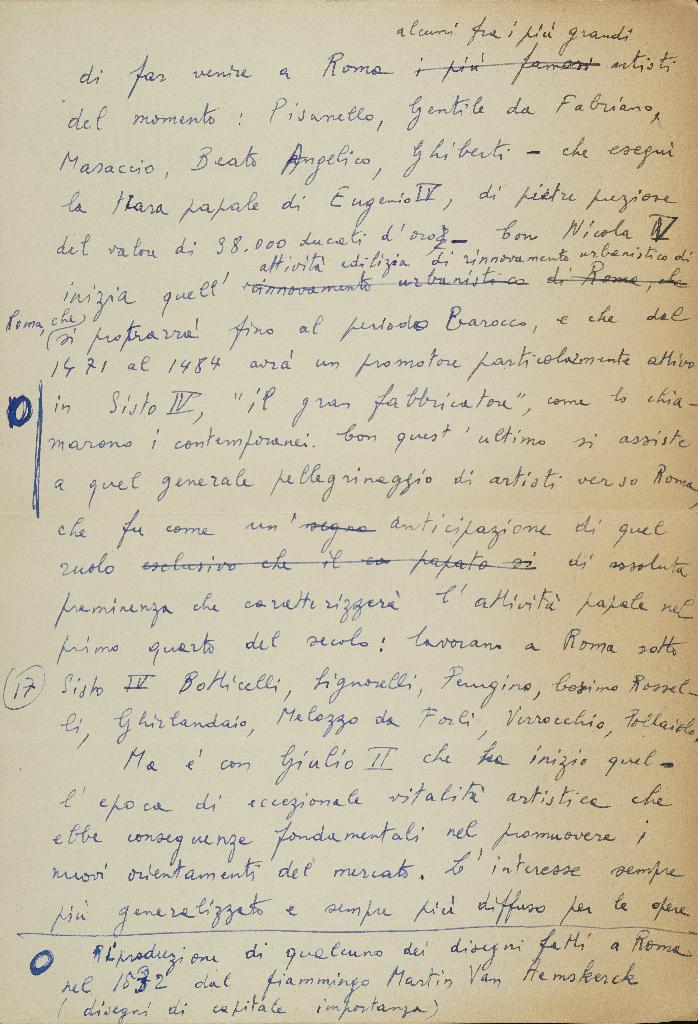 alcuni fra i più grandi
di far venire a Roma i più famosi artisti
del momento: Pisanello, Gentile da Fabriano,
Masaccio, Beato Angelico, Ghiberti - che eseguì
la tiara papale di Eugenio IV, di pietre preziose
del valore di 38.000 ducati d'oro - Con Nicola V
attività edilizia di rinnovamento urbanistico di
inizia quell' rinnovamento urbanistico di Roma, che
Roma, che si protrarrà fino al periodo Barocco, e che dal
1471 al 1484 avrà un promotore particolarmente attivo
in Sisto IV, "il gran fabbricatore", come lo chia-
marono i contemporanei. Con quest'ultimo si assiste
a quel generale pellegrinaggio di artisti verso Roma,
che fu come un' segno anticipazione di quel
ruolo esclusivo che il papato si di assoluta
preminenza che caratterizzerà l'attività papale nel
primo quarto del secolo: lavorano a Roma sotto
(17) Sisto IV Botticelli, Signorelli, Perugino, Cosimo Rossel-
li, Ghirlandaio, Melozzo da Forlì, Verrocchio, Pollaiolo.
Ma è con Giulio II che ha inizio quel-
l'epoca di eccezionale vitalità artistica che
ebbe conseguenze fondamentali nel promuovere i
nuovi orientamenti del mercato. L'interesse sempre
più generalizzato e sempre più diffuso per le opere
O Riproduzione di qualcuno dei disegni fatti a Roma
nel 1532 dal fiammingo Martin Van Hemskerck
(disegni di capitale importanza)